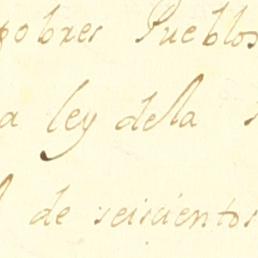 pobres Pueblos
a ley dela
de seiscientos